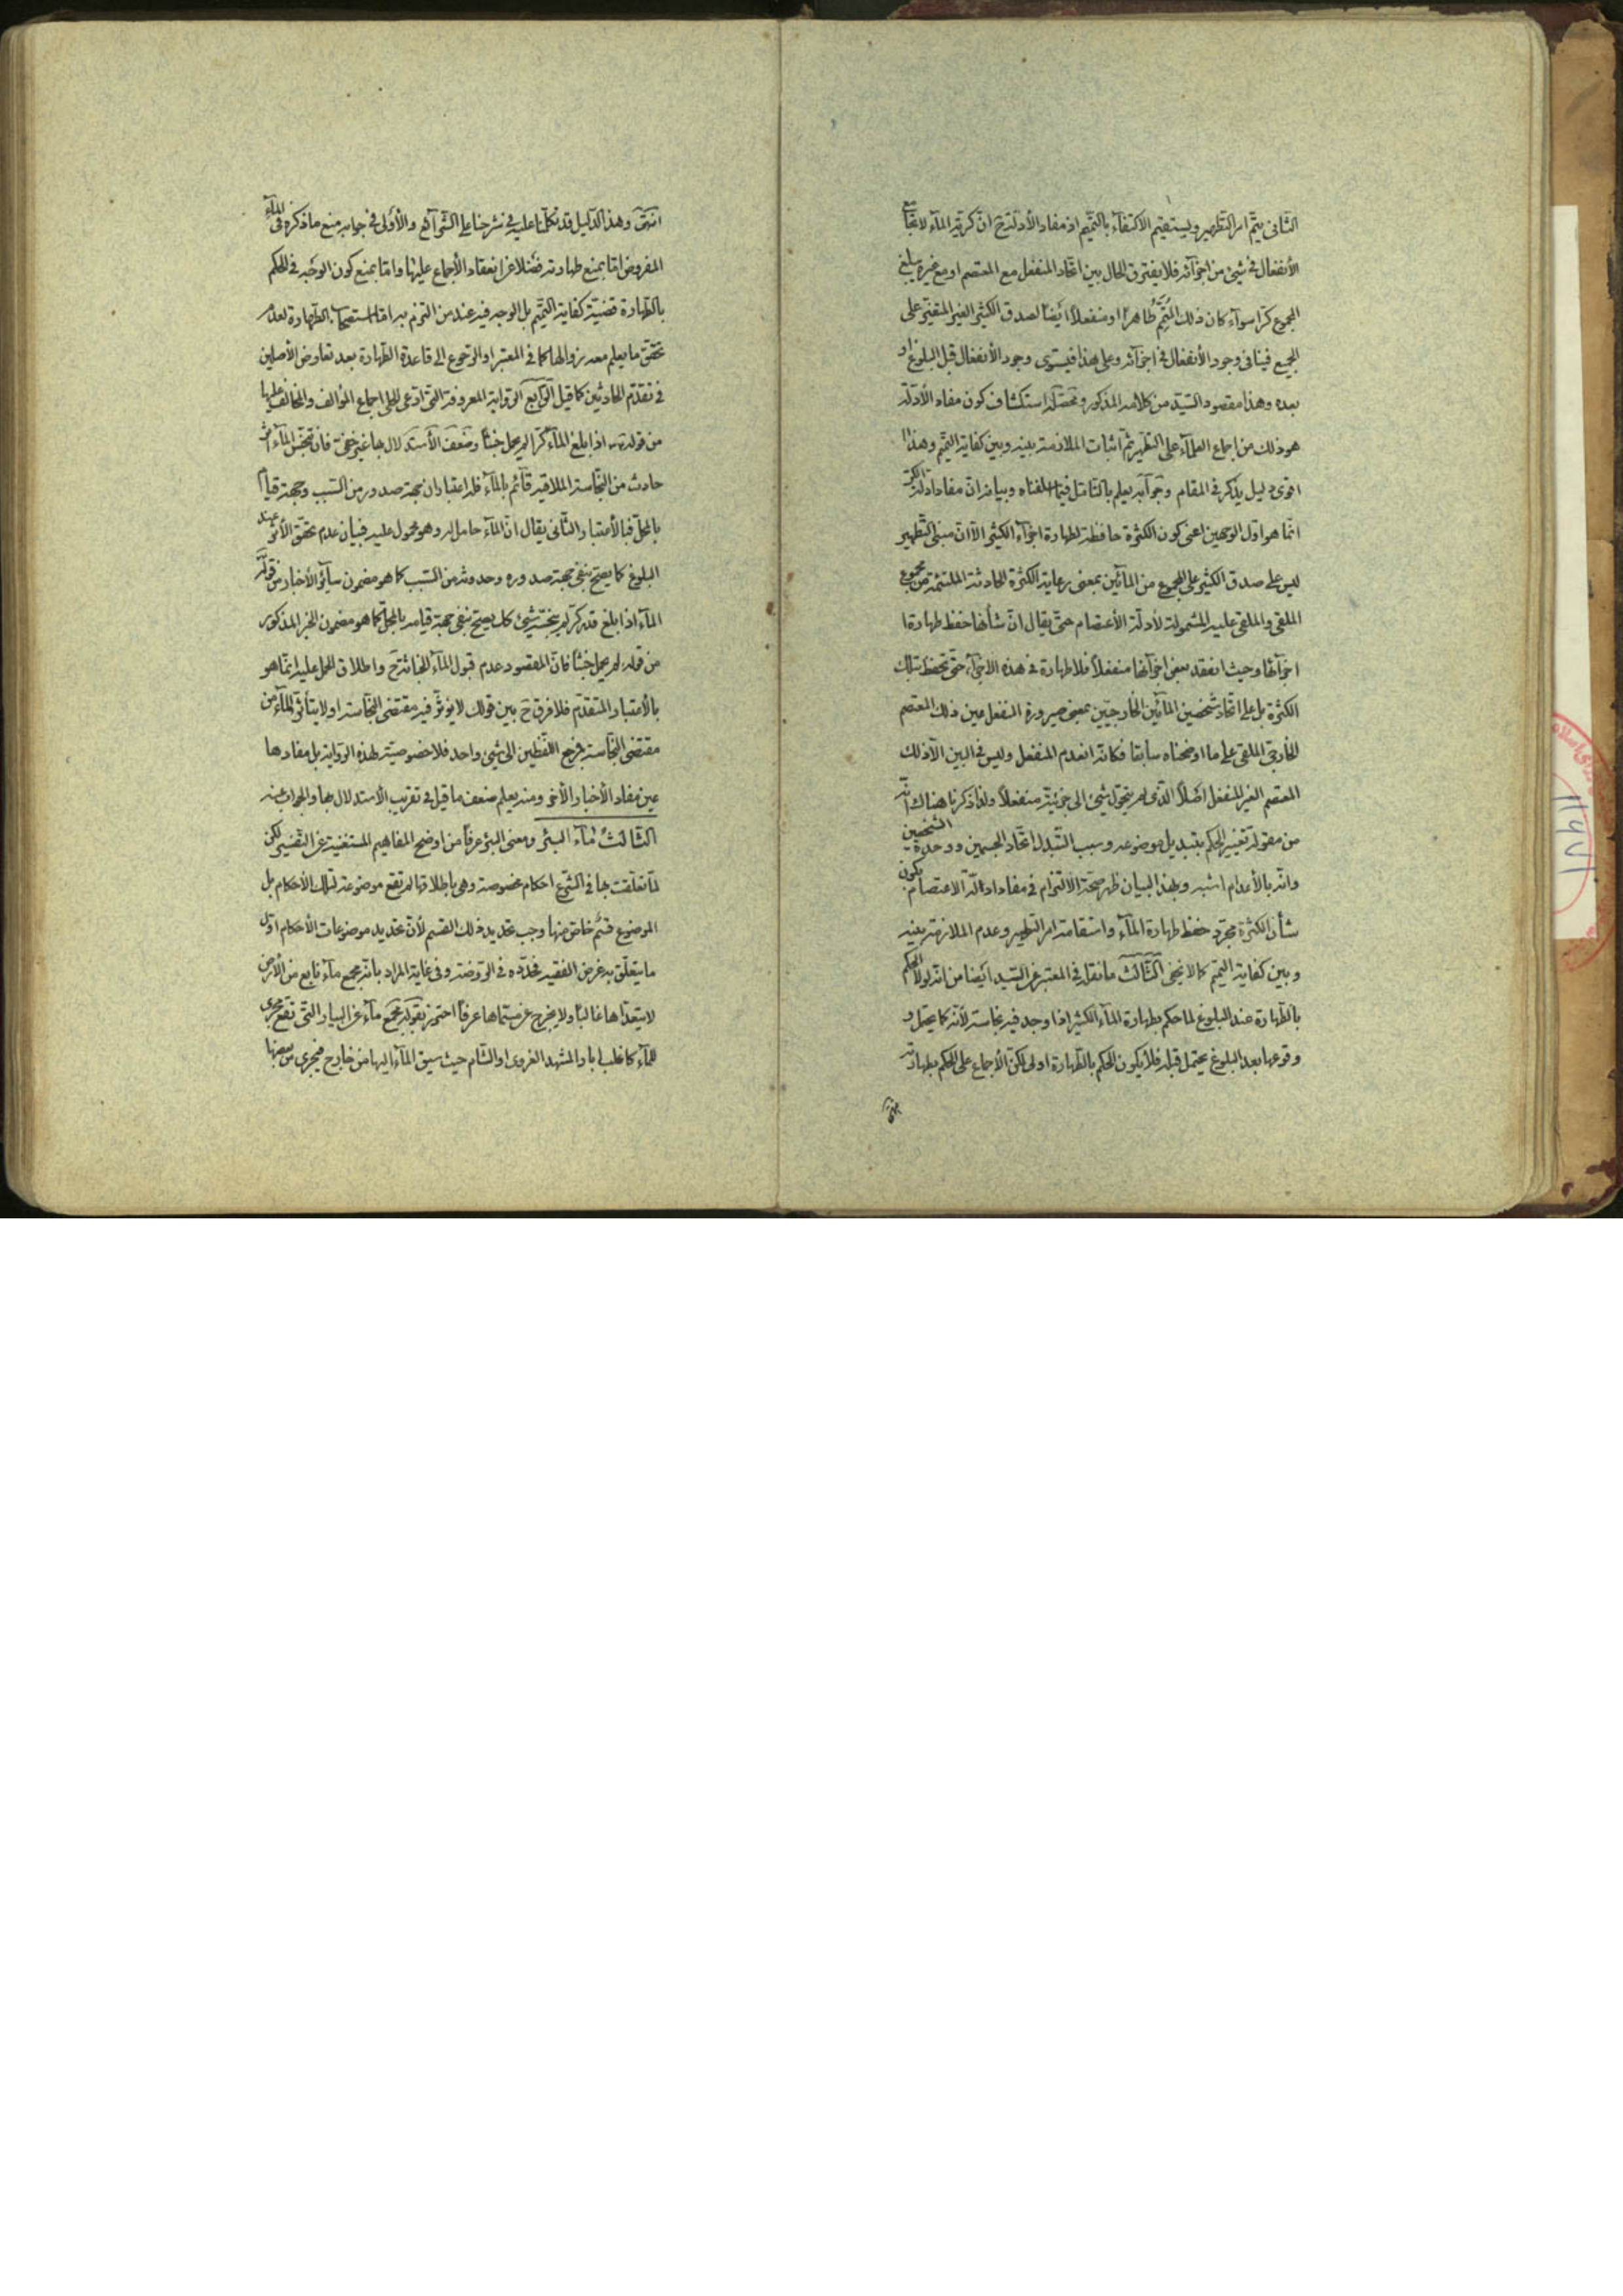 الثانى يتم امر التطهير ويستقيم الاكتفاء بالتتميم اذ مفاد الأدلة ح ان كرية الماء لا تجامع
الأنفعال فى شىء من اجزائه فلا يفترق الحال بين اتحاد المنفعل مع المعتصم او مع غيره يبلغ
المجموع كرا سواء كان ذلك المتمم طاهرا او منفعلا ايضا لصدق الكثير الغير المتغير على
الجميع فينافى وجود الأنفعال فى اجزائه وعلى هذا فيستوى وجود الأنفعال قبل البلوغ او
بعده وهذا مقصود السيد من كلامه المذكور ومحصله استكشاف كون مفاد الأدلة
هو ذلك من اجماع العلماء على التطهير ثم اثبات الملازمة بينه وبين كفاية التتميم وهذا
اقوى دليل يذكر فى المقام وجوابه يعلم بالتامل فيما اسلفناه وبيانه ان مفاد ادلة الكر
انما هو اول الوجهين اعنى كون الكثرة حافظة لطهارة اجزاء الكثير الا ان مبنى التطهير
ليس على صدق الكثير على المجموع من المائين بمعنى رعاية الكثرة الحادثة الملتئمة من مجموع
الملقى والملقى عليه المشمولة لأدلة الأعتصام حتى يقال ان شأنها حفظ طهارة
اجزائها وحيث انعقد بعض اجزائها منفعلا فلا طهارة فى هذه الاجزاء حتى تحفظ بتلك
الكثرة بل على اتحاد شخصين المائين الخارجيين بمعنى صيرورة المنفعل عين ذلك المعتصم
الخارجى الملقى على ما اوضحناه سابقا فكانه انعدم المنفعل وليس فى البين الا ذلك
المعتصم الغير المنفعل اصلا الذى لم يتحول شىء الى جزئيته منفعلا ولذا ذكرنا هناك انه
من مقولة تغيير الحكم بتبديل موضوعه وسبب التبدل اتحاد الجسمين ووحدة الشخصين
وانه بالأعدام اشبه وبهذا البيان ظهر صحة الالتزام فى مفاد ادلة الاعتصام بكون
شأن الكثرة مجرد حفظ طهارة الماء واستقامة امر التطهير وعدم الملازمة بينه
وبين كفاية التتميم كما لا يخفى الثالث ما نقله فى المعتبر عن السيد ايضا من انه لولا الحكم
بالطهارة عند البلوغ لما حكم بطهارة الماء الكثير اذا وجد فيه نجاسة لأنه كما يحتمل
وقوعها بعد البلوغ يحتمل قبله فلا يكون الحكم بالطهارة اولى لكن الأجماع على الحكم بطهارته
انتهى
انتهى وهذا الدليل قد تكلمنا عليه فى شرحنا على الشرائع والأولى فى جوابه منع ما ذكره فى الماء
المفروض اما بمنع طهارته فضلا عن انعقاد الأجماع عليها واما بمنع كون الوجه فى الحكم
بالطهارة قضية كفاية التتميم بل الوجه فيه عند من التزم به اما استصحاب الطهارة لعدم
تحقق ما يعلم معه زوالها كما فى المعتبر او الرجوع الى قاعدة الطهارة بعد تعارض الأصلين
فى تقدم الحادثين كما قيل الرابع الرواية المعروفة التى ادعى الحلى اجماع المؤالف والمخالف عليها
من قوله اذا بلغ الماء كرا لم يحمل خبثا وضعف الأستدلال بها غير خفى فان تنجس الماء اثر
حادث من النجاسة الملاقية قائم بالماء فله اعتباران جهة صدوره من السبب وجهة قيامه
بالمحل فبالأعتبار الثانى يقال ان الماء حامل له وهو محمول عليه فبيان عدم تحقق الأثر عند
البلوغ كما يصح بنفى جهة صدوره وحدوثه من السبب كما هو مضمون سائر الأخبار من قوله
الماء اذا بلغ قدر كر لم ينجسه شىء كك يصح بنفى جهة قيامه بالمحل كما هو مضمون الخبر المذكور
من قوله لم يحمل خبثا فان المقصود عدم قبول الماء للخباثة ح واطلاق الحمل عليه انما هو
بالأعتبار المتقدم فلا فرق ح بين قولك لا يؤثر فيه مقتضى النجاسة او لا يتأثر الماء من
مقتضى النجاسة فمرجع اللفظين الى شىء واحد فلا خصوصية لهذه الرواية بل مفادها
عين مفاد الأخبار الأخر ومنه يعلم ضعف ما قيل فى تقريب الاستدلال بها والجواب عنه
الثالث ماء البئر ومعنى البئر عرفا من اوضح المفاهيم المستغنية عن التفسير لكن
لما تعلقت بها فى الشرع احكام مخصوصة وهى باطلاقها لم تقع موضوعة لتلك الأحكام بل
الموضوع قسم خاص منها وجب تحديد ذلك القسم لأن تحديد موضوعات الأحكام اول
ما يتعلق به غرض الفقيه فحدده فى الروضة وفى غاية المراد بانه مجمع ماء نابع من الأرض
لا يتعداها غالبا ولا يخرج عن مسماها عرفا احترز بقوله مجمع ماء عن البيار التى تقع مجرى
للماء كاغلب ابار المشهد الغروى او الشام حيث سيق الماء اليها من خارج فيجرى من بعضها